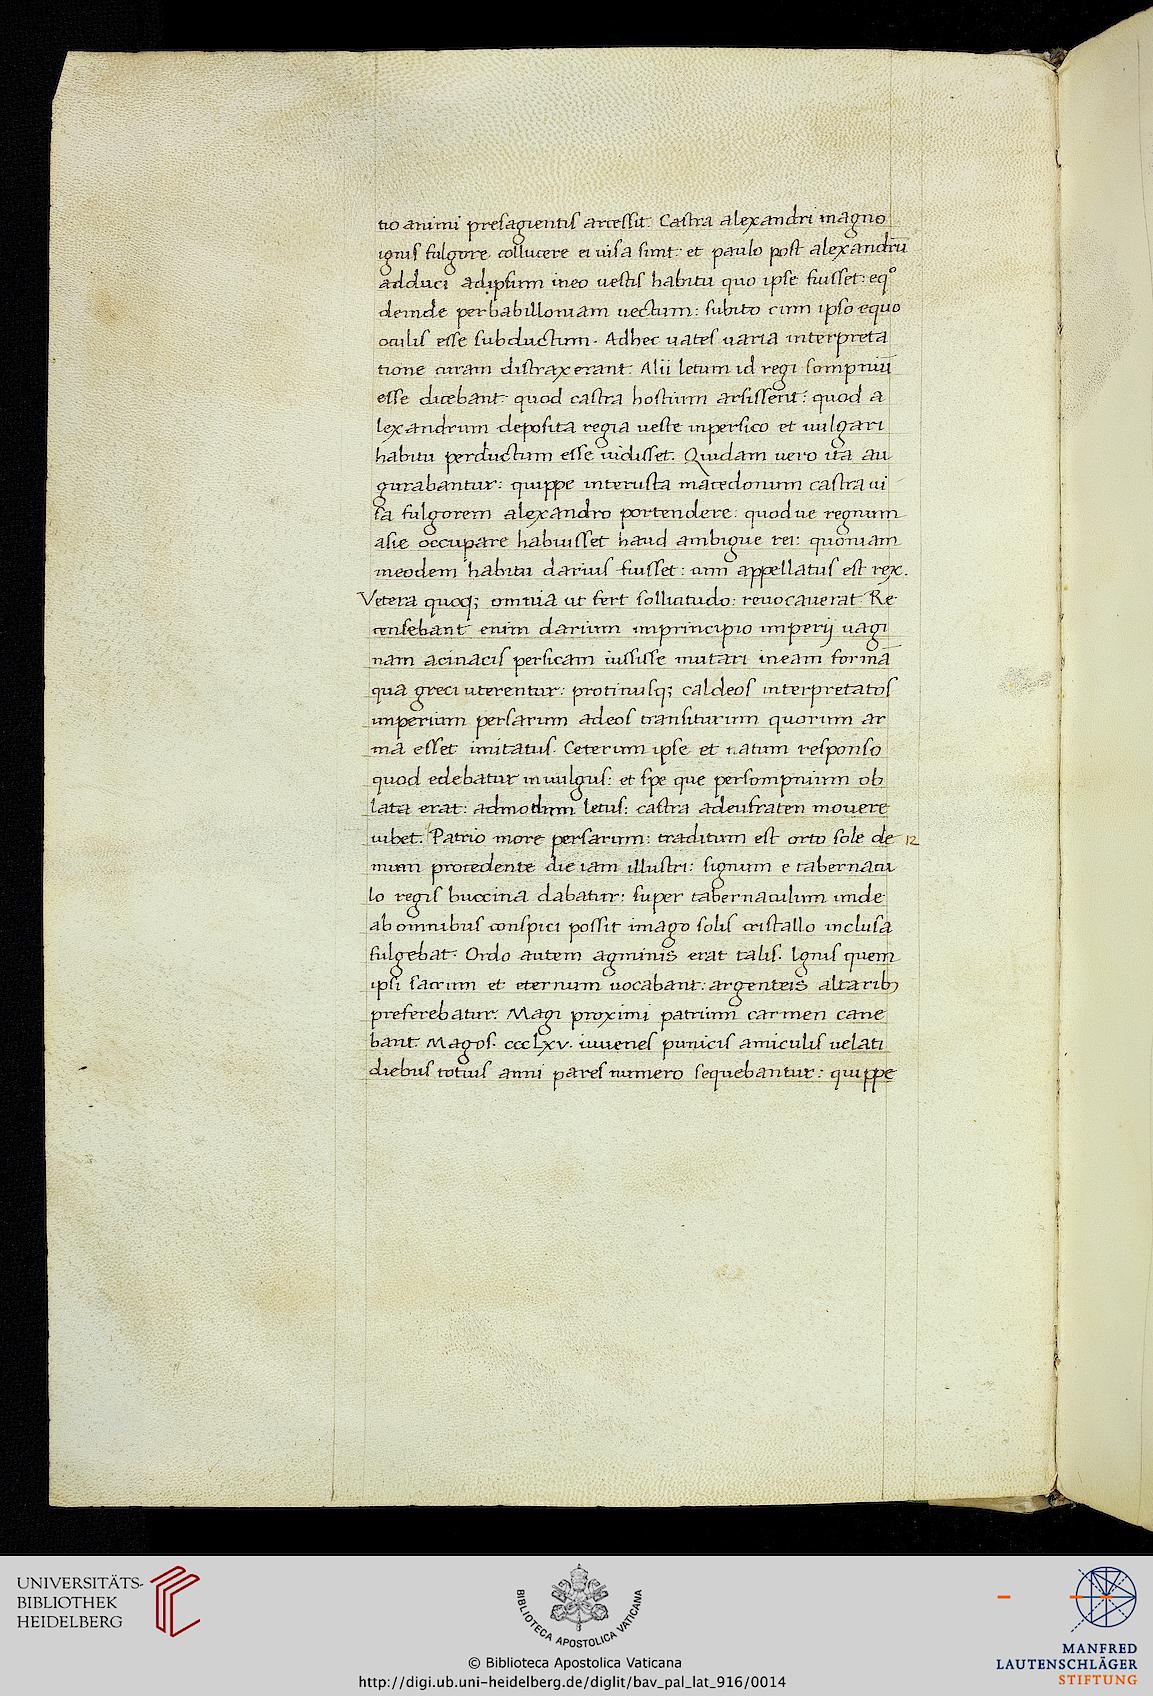 tio animi presagientis arcessit. Castra alexandri magno
ignis fulgore collucere ei uisa sunt: et paulo post alexandrū
adduci adipsum ineo uestis habitu quo ipse fuisset: eqº
deinde perbabilloniam uectum: subito cum ipso equo
oculis esse subductum. Adhec uates uaria interpreta
tione curam distraxerant. Alii letum id regi sompniū
esse dicebant quod castra hostium arsissent: quod a
lexandrum deposita regia ueste inpersico et uulgari
habitu perductum esse uidisset. Quidam uero ita au
gurabantur: quippe interusta macedonum castra ui
sa fulgorem alexandro portendere: quodue regnum
asie occupare habuisset haud ambigue rei: quoniam
ineodem habitu darius fuisset: cum appellatus est rex.
Vetera quoq; omnia ut fert sollicitudo: reuocauerat. Re
censebant enim darium inprincipio imperij uagi
nam acinacis persicam iussisse mutari ineam formā
qua greci uterentur: protinusq; caldeos interpretatos
imperium persarum adeos transiturum quorum ar
ma esset imitatus. Ceterum ipse et uatum responso
quod edebatur inuulgus: et spe que persompnium ob
lata erat: admodum letus: castra adeufraten mouere
iubet. Patrio more persarum: traditum est orto sole de 12
mum procedente die iam illustri: signum e tabernacu
lo regis buccina dabatur: super tabernaculum unde
ab omnibus conspici possit imago solis cristallo inclusa
fulgebat. Ordo autem agminis erat talis. Ignis quem
ipsi sacrum et eternum uocabant: argenteis altarib;
preferebatur. Magi proximi patrium carmen cane
bant. Magos. cccLxv. iuuenes punicis amiculis uelati
diebus totius anni pares numero sequebantur: quippe
UNIVERSITÄTS-
BIBLIOTHEK
HEIDELBERG
BIBLIOTECA APOSTOLICA VATICANA
© Biblioteca Apostolica Vaticana
http://digi.ub.uni-heidelberg.de/diglit/bav_pal_lat_916/0014
MANFRED
LAUTENSCHLÄGER
STIFTUNG